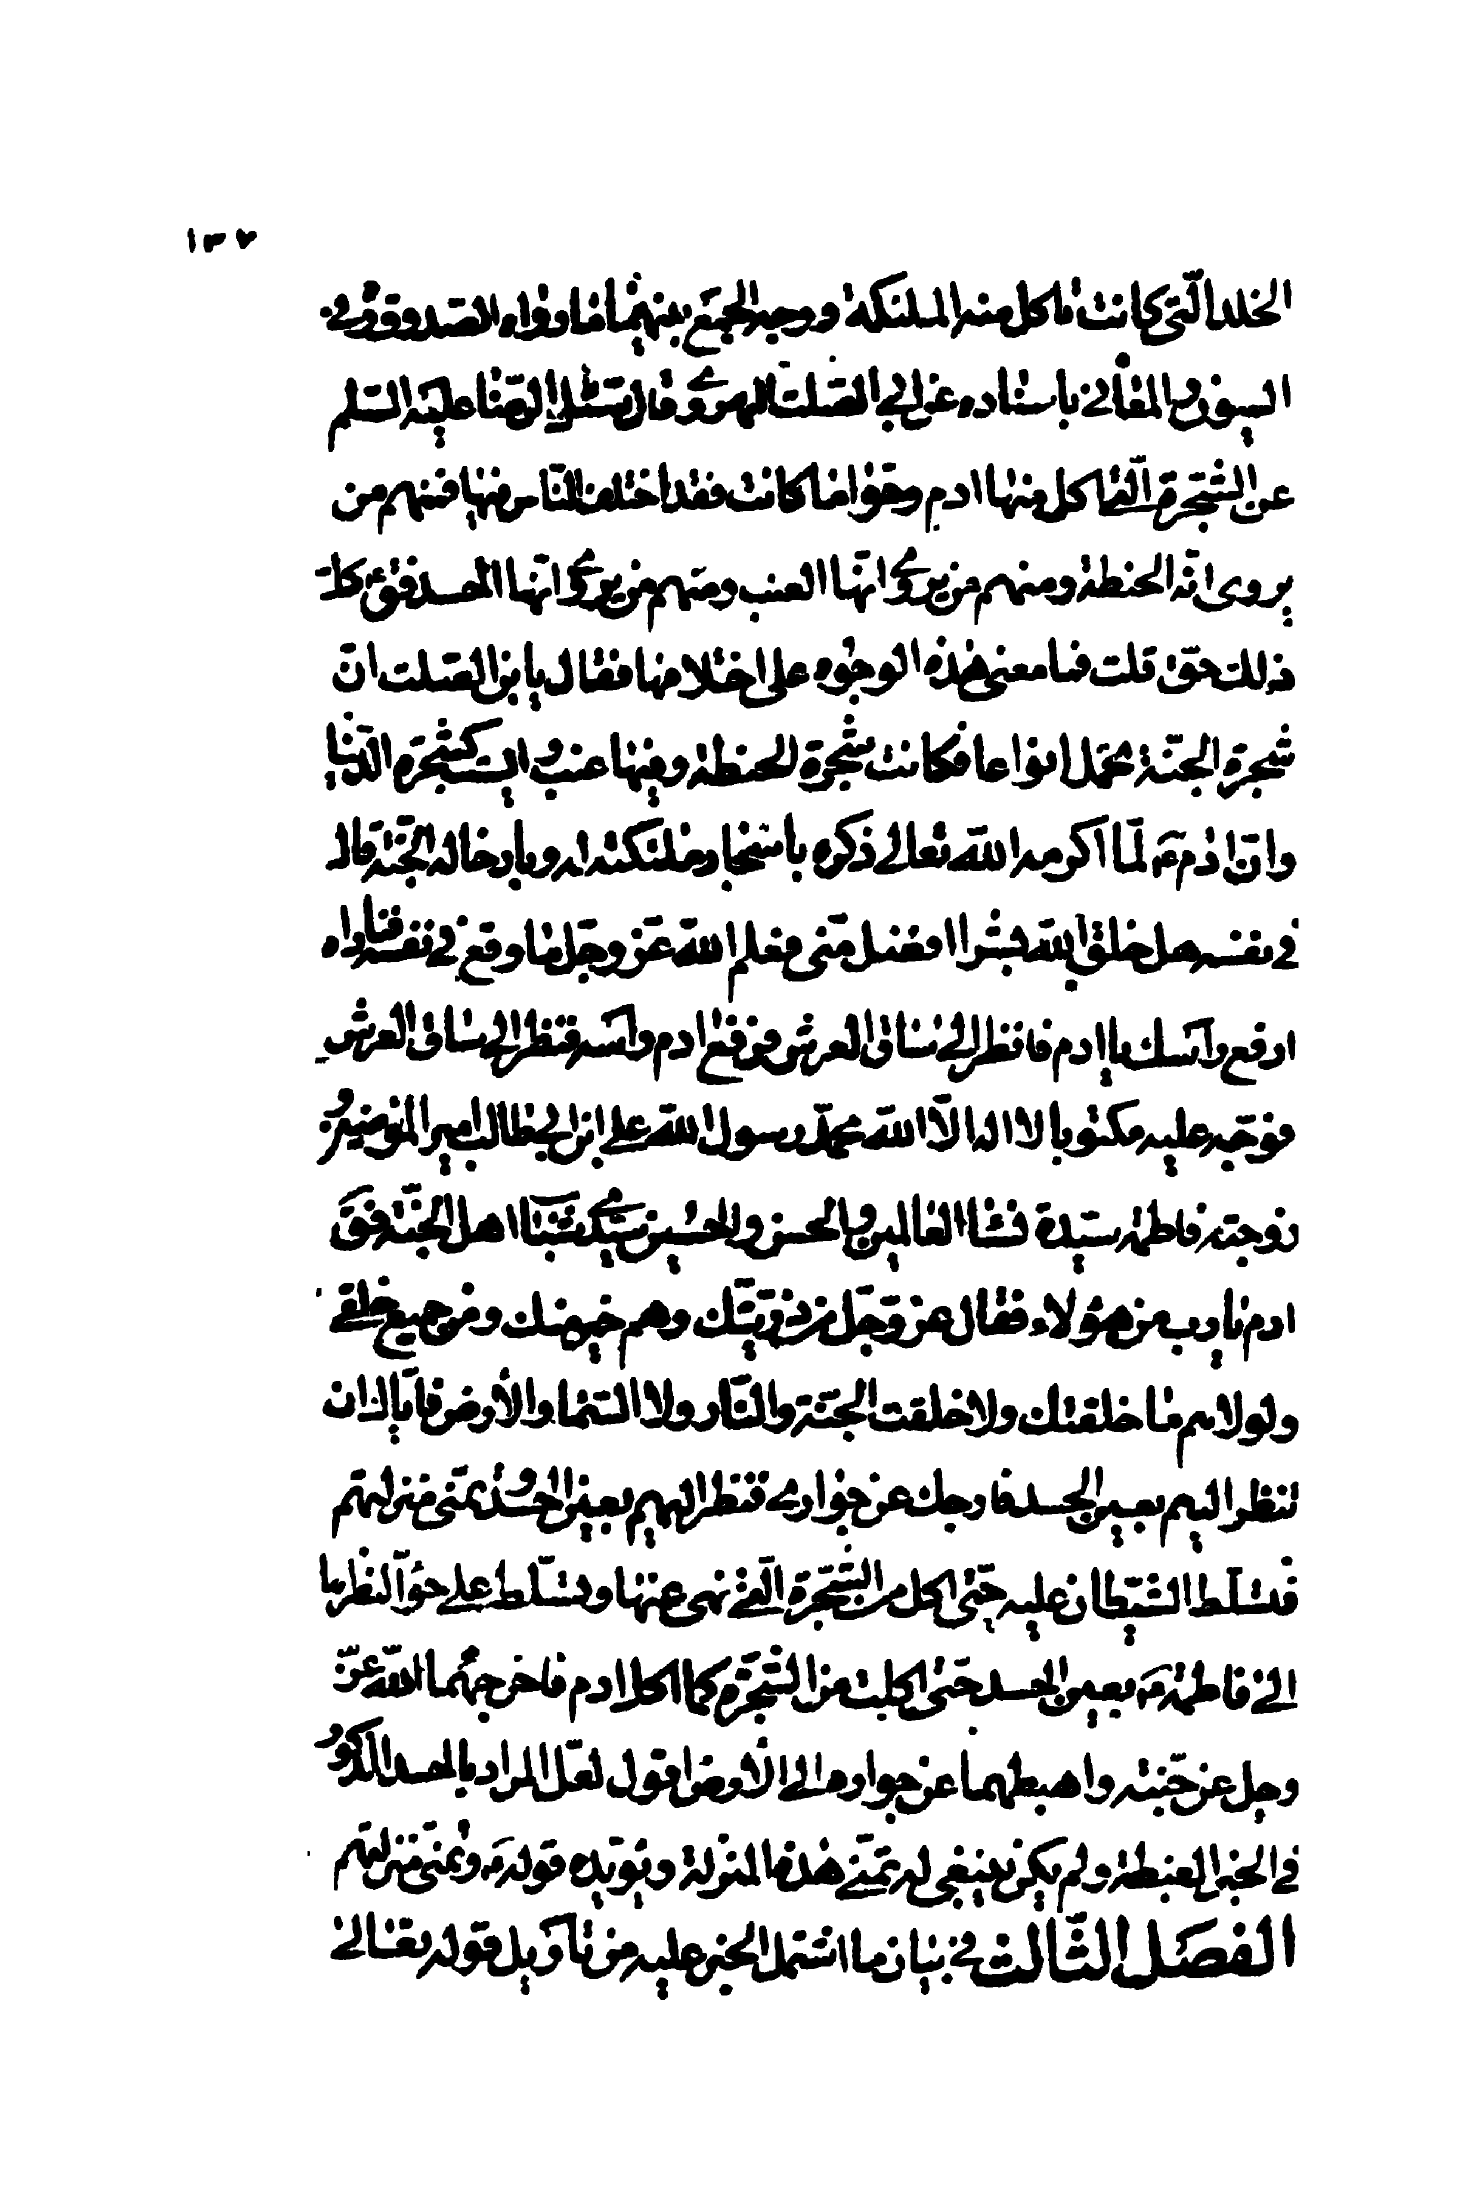 ١٣٧
الخلد الّتى كانت تاكل منه الملئكة ووجه الجمع بينهما ما رواه الصدوق فى
العيون والمعانى باسناده عن ابى الصّلت الهروى قال سئل الرضا عليه السّلم
عن الشّجرة الّتى اكل منها ادم وحوّا ما كانت فقد اختلف النّاس فيها فمنهم من
يروى انّه الحنطة ومنهم من يروى انّها العنب ومنهم من يروى انّها الحسد فق ع كلّ
ذلك حقّ قلت فما معنى هذه الوجوه على اختلافها فقال يا بن الصّلت انّ
شجرة الجنّة تحمل انواعا فكانت شجرة الحنطة وفيها عنب وليست كشجرة الدّنيا
وانّ ادم ع لمّا اكرمه اللّه تعالى ذكره باسجاد ملئكته له وبادخاله الجنّة قال
فى نفسه هل خلق اللّه بشرا افضل منّى فعلم اللّه عزّ وجلّ ما وقع فى نفسه فناداه
ارفع راسك يا ادم فانظر الى ساق العرش فرفع ادم راسه فنظر الى ساق العرش
فوجد عليه مكتوبا لا اله الّا اللّه محمّد رسول اللّه على ابن ابى طالب امير المؤمنين و
زوجته فاطمة سيّدة نساء العالمين والحسن والحسين سيّدى شباب اهل الجنّة فق
ادم يا رب من هؤلاء فقال عزّ وجلّ من ذرّيّتك وهم خير منك ومن جميع خلقى
ولولاهم ما خلقتك ولا خلقت الجنّة والنّار ولا السّماء والأرض فايّاك ان
تنظر اليهم بعين الحسد فاخرجك عن جوارى فنظر اليهم بعين الحسد وتمنّى منزلتهم
فتسلّط الشّيطان عليه حتّى اكل من الشّجرة الّتى نهى عنها وتسلّط على حوّا لنظرها
الى فاطمة ع بعين الحسد حتّى اكلت من الشّجرة كما اكل ادم فاخرجهما اللّه عزّ
وجل عن جنّته واهبطهما عن جواره الى الأرض اقول لعلّ المراد بالحسد المذكور
فى الخبر الغبطة ولم يكن ينبغى له تمنّى هذه المنزلة ويؤيّده قوله ع وتمنّى منزلتهم
الفصل الثّالث فى بيان ما اشتمل الخبر عليه من تاويل قوله تعالى